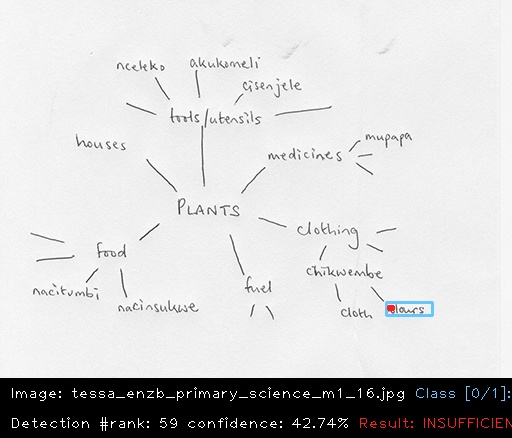 nceleko
akukomeli
cisenjele
tools/utensils
houses
medicines
mupapa
PLANTS
clothing
food
chikwembe
nacitumbi
nacinsukwe
fuel
cloth
Image: tessa_enzb_primary_science_m1_16.jpg Class [0/1]:
Detection #rank: 59 confidence: 42.74% Result: INSUFFICIEN